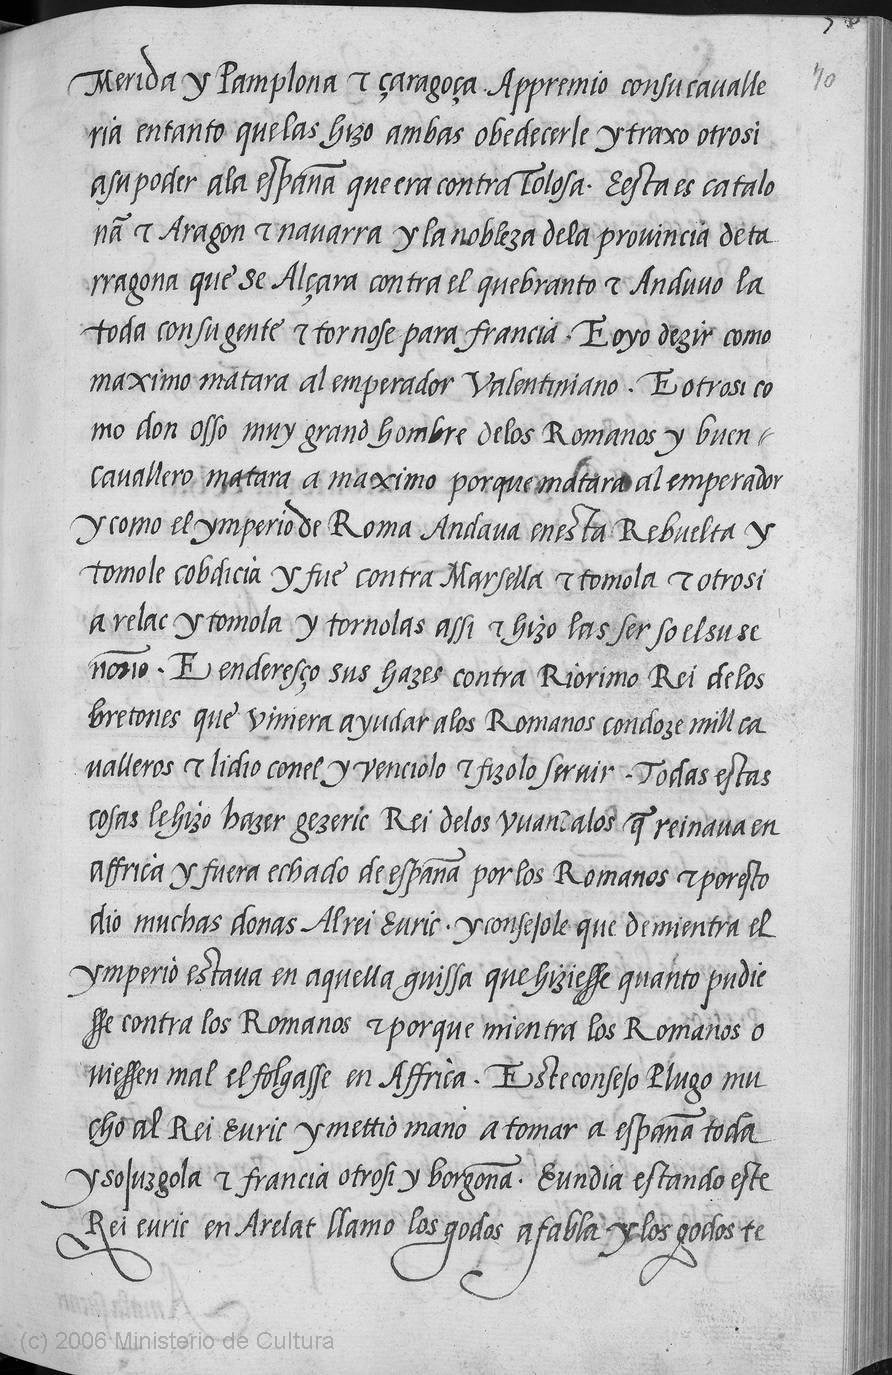 70
Merida y Pamplona τ çaragoça. Appremio consu cavalle
ria entanto quelas hizo ambas obedecerle ytraxo otrosi
asu poder ala espãna que era contra Tolosa. Eesta es catalo
nã τ Aragon τ nauarra y la nobleza dela provincia de ta
rragona que se Alçara contra el quebranto τ Anduuo la
toda consu gente τ tornose para francia. E oyo dezir como
maximo matara al emperador Valentiniano. E otrosi co
mo don osso muy grand hombre delos Romanos y buen
cavallero matara a maximo porque matara al emperador
y como el ymperio de Roma Andaua enesta Rebuelta y
tomole cobdicia y fue contra Marsella τ tomola τ otrosi
a relac y tomola y tornolas assi τ hizo las ser so el su se
norio. E enderesço sus hazes contra Riorimo Rei delos
bretones que viniera ayudar alos Romanos con doze mill ca
valleros τ lidio conel y venciolo τ fizolo seruir. Todas estas
cosas le hizo hazer gezeric Rei delos vuandalos q̃ reinaua en
affrica y fuera echado de espãna por los Romanos τ por esto
dio muchas donas Al rei Euric. y consejole que demientra el
ymperio estaua en aquella guissa que hiziesse quanto pudie
sse contra los Romanos τ porque mientra los Romanos o
uiessen mal el folgasse en Affrica. Este consejo Plugo mu
cho al Rei Euric y mettio mano a tomar a espãna toda
y sojuzgola τ francia otrosi y borgonã. Eun dia estando este
Rei euric en Arelat llamo los godos a fabla y los godos te
(c) 2006 Ministerio de Cultura